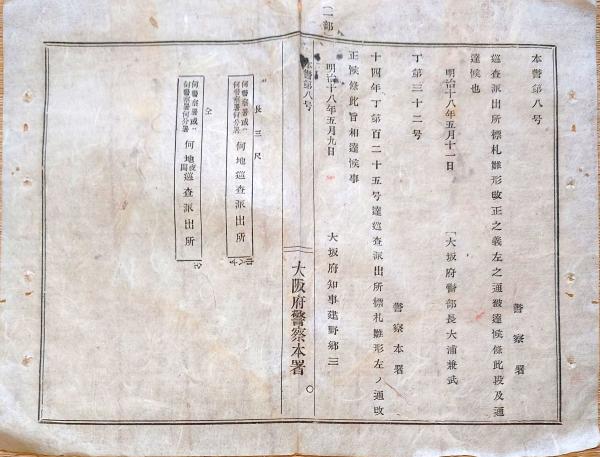 本警第八号
警察署
巡査派出所標札雛形改正之義左之通被達候条此段及通
達候也
明治十八年五月十一日
大坂府警部長大浦兼武
丁第三十二号
警察本署
十四年丁第百二十五号達巡査派出所標札雛形左ノ通改
正候条此旨相達候事
明治十八年五月九日
大坂府知事建野郷三
本警第八号
大阪府警察本署
長三尺
何警察署或ハ
何警察署何分署
何地巡査派出所
巾八寸
仝
何警察署或ハ
何警察署何分署
何地夜間巡査派出所
仝